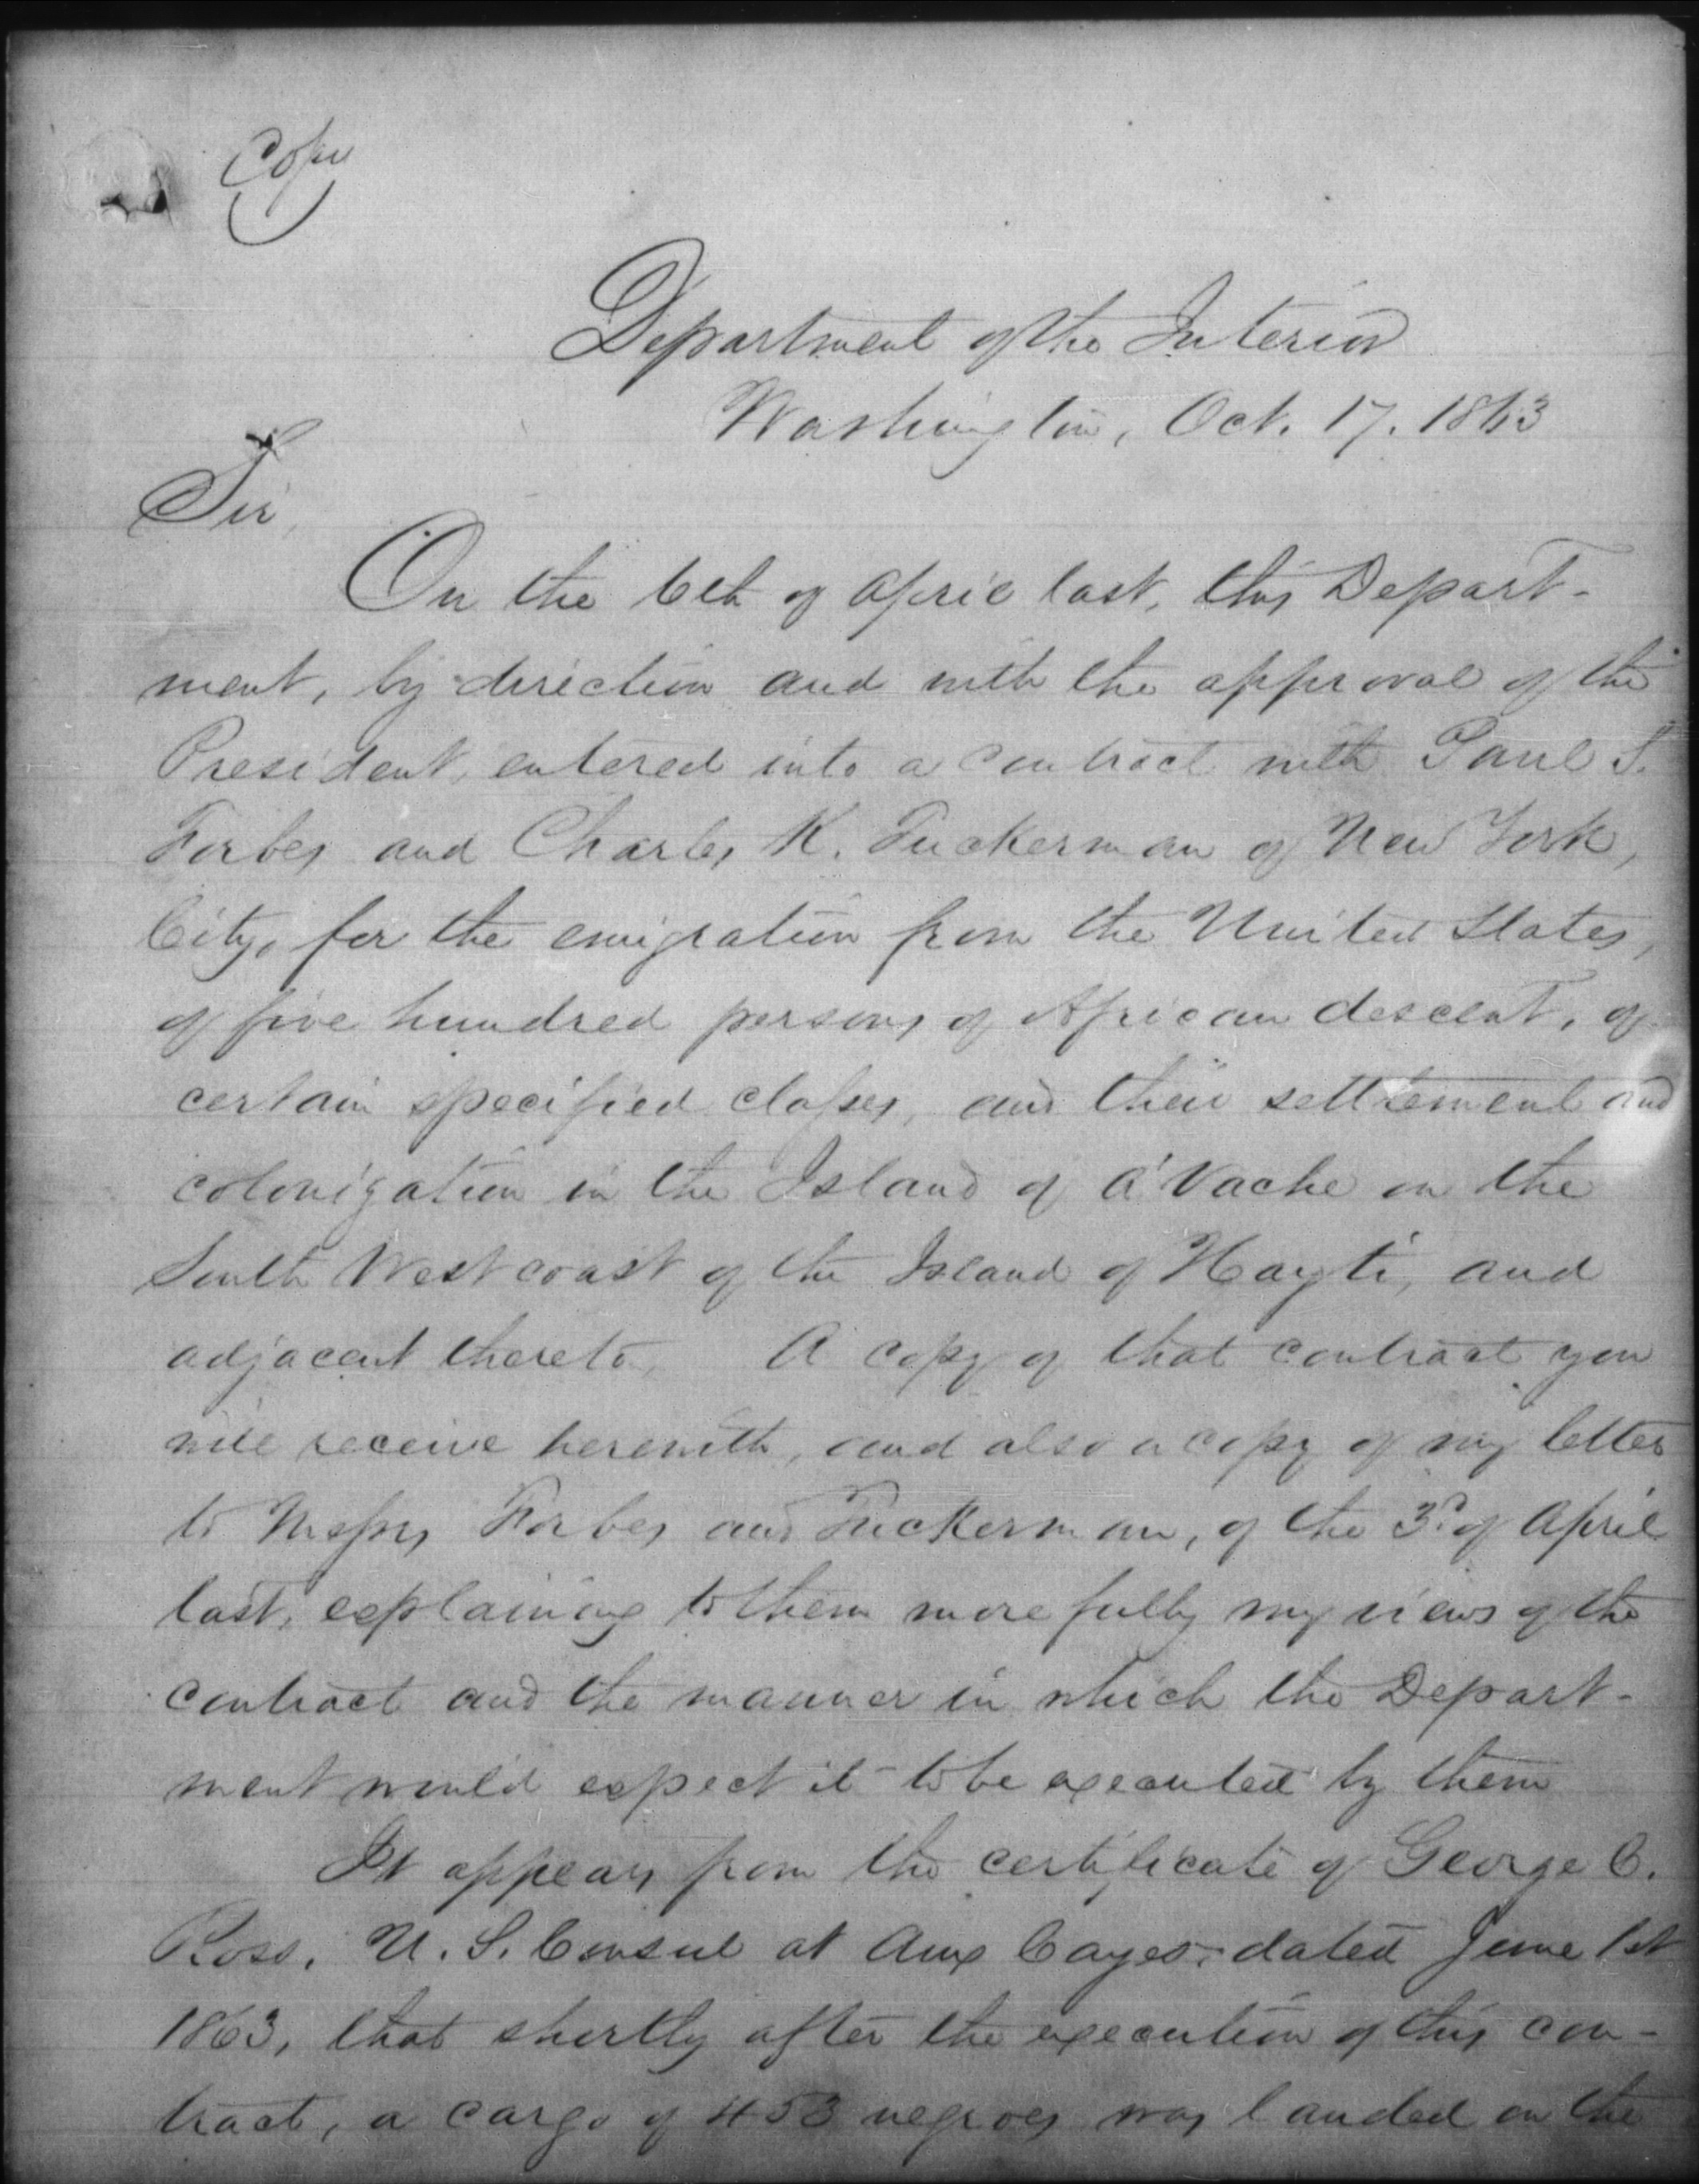 Copy
Department of the Interior
Washington, Oct. 17. 1863
Sir,
On the 6th of April last, this Depart-
ment, by direction and with the approval of the
President, entered into a contract with Paul S.
Forbes and Charles K. Tuckerman of New York,
City, for the emigration from the United States,
of five hundred persons of African descent, of
certain specified classes, and their settlement and
colonization in the Island of A'Vache on the
South West coast of the Island of Hayti, and
adjacent thereto. A copy of that contract you
will receive herewith, and also a copy of my letter
to Messrs Forbes and Tuckerman, of the 3d of April
last, explaining to them more fully my views of the
contract and the manner in which the Depart-
ment would expect it to be executed by them
It appears from the certificate of George C.
Ross, U. S. Consul at Aux Cayes, dated June 1st
1863, that shortly after the execution of this con-
tract, a cargo of 453 negroes was landed on the